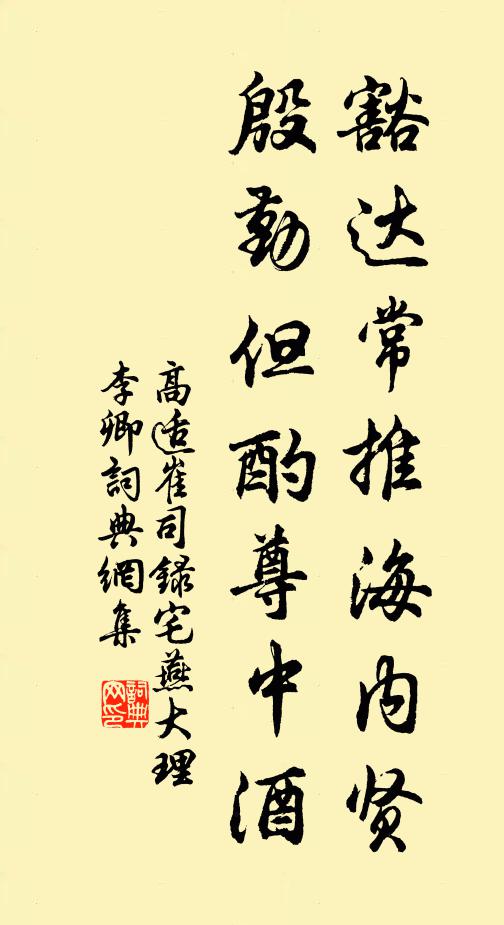 豁达常推海内贤
殷勤但酌尊中酒
高适崔司録宅燕大理
李卿詞典網集
詞典
网印